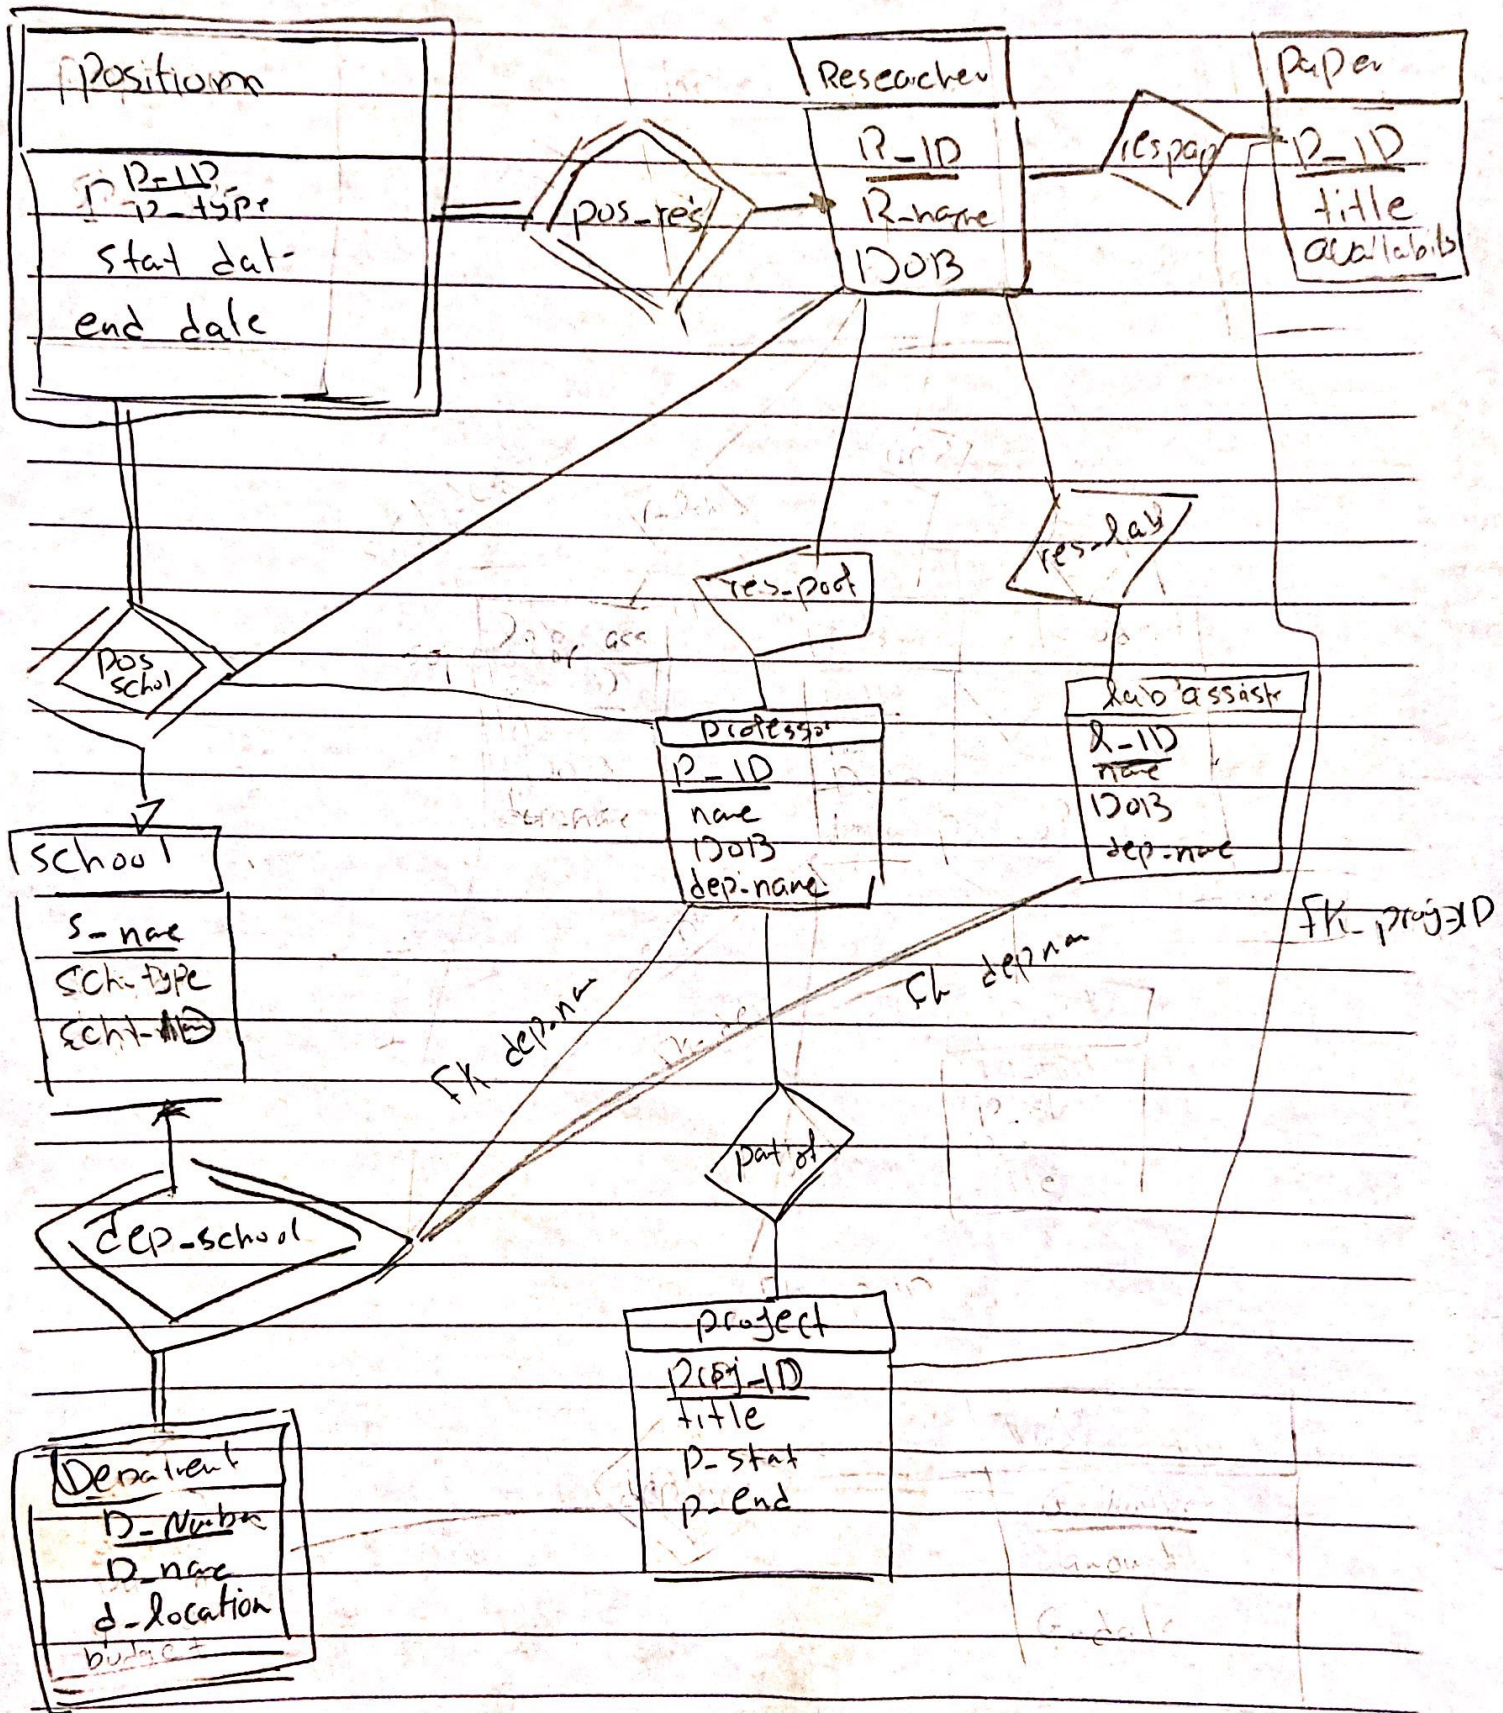 Positionm
P_ID
P_type
stat dat-
end date
pos_res
Reseacher
R_ID
R_name
DOB
respap
Paper
P_ID
title
availabilt
pos
schol
res_poof
res_lab
professor
P_ID
name
DOB
dep-name
lab assist
l_ID
name
DOB
dep-name
School
S_name
Sch-type
FK depnam
Fk depnam
FK_projID
dep_school
pat of
project
Proj_ID
title
p_stat
p_end
Depatment
D_Number
D_name
d_location
budget